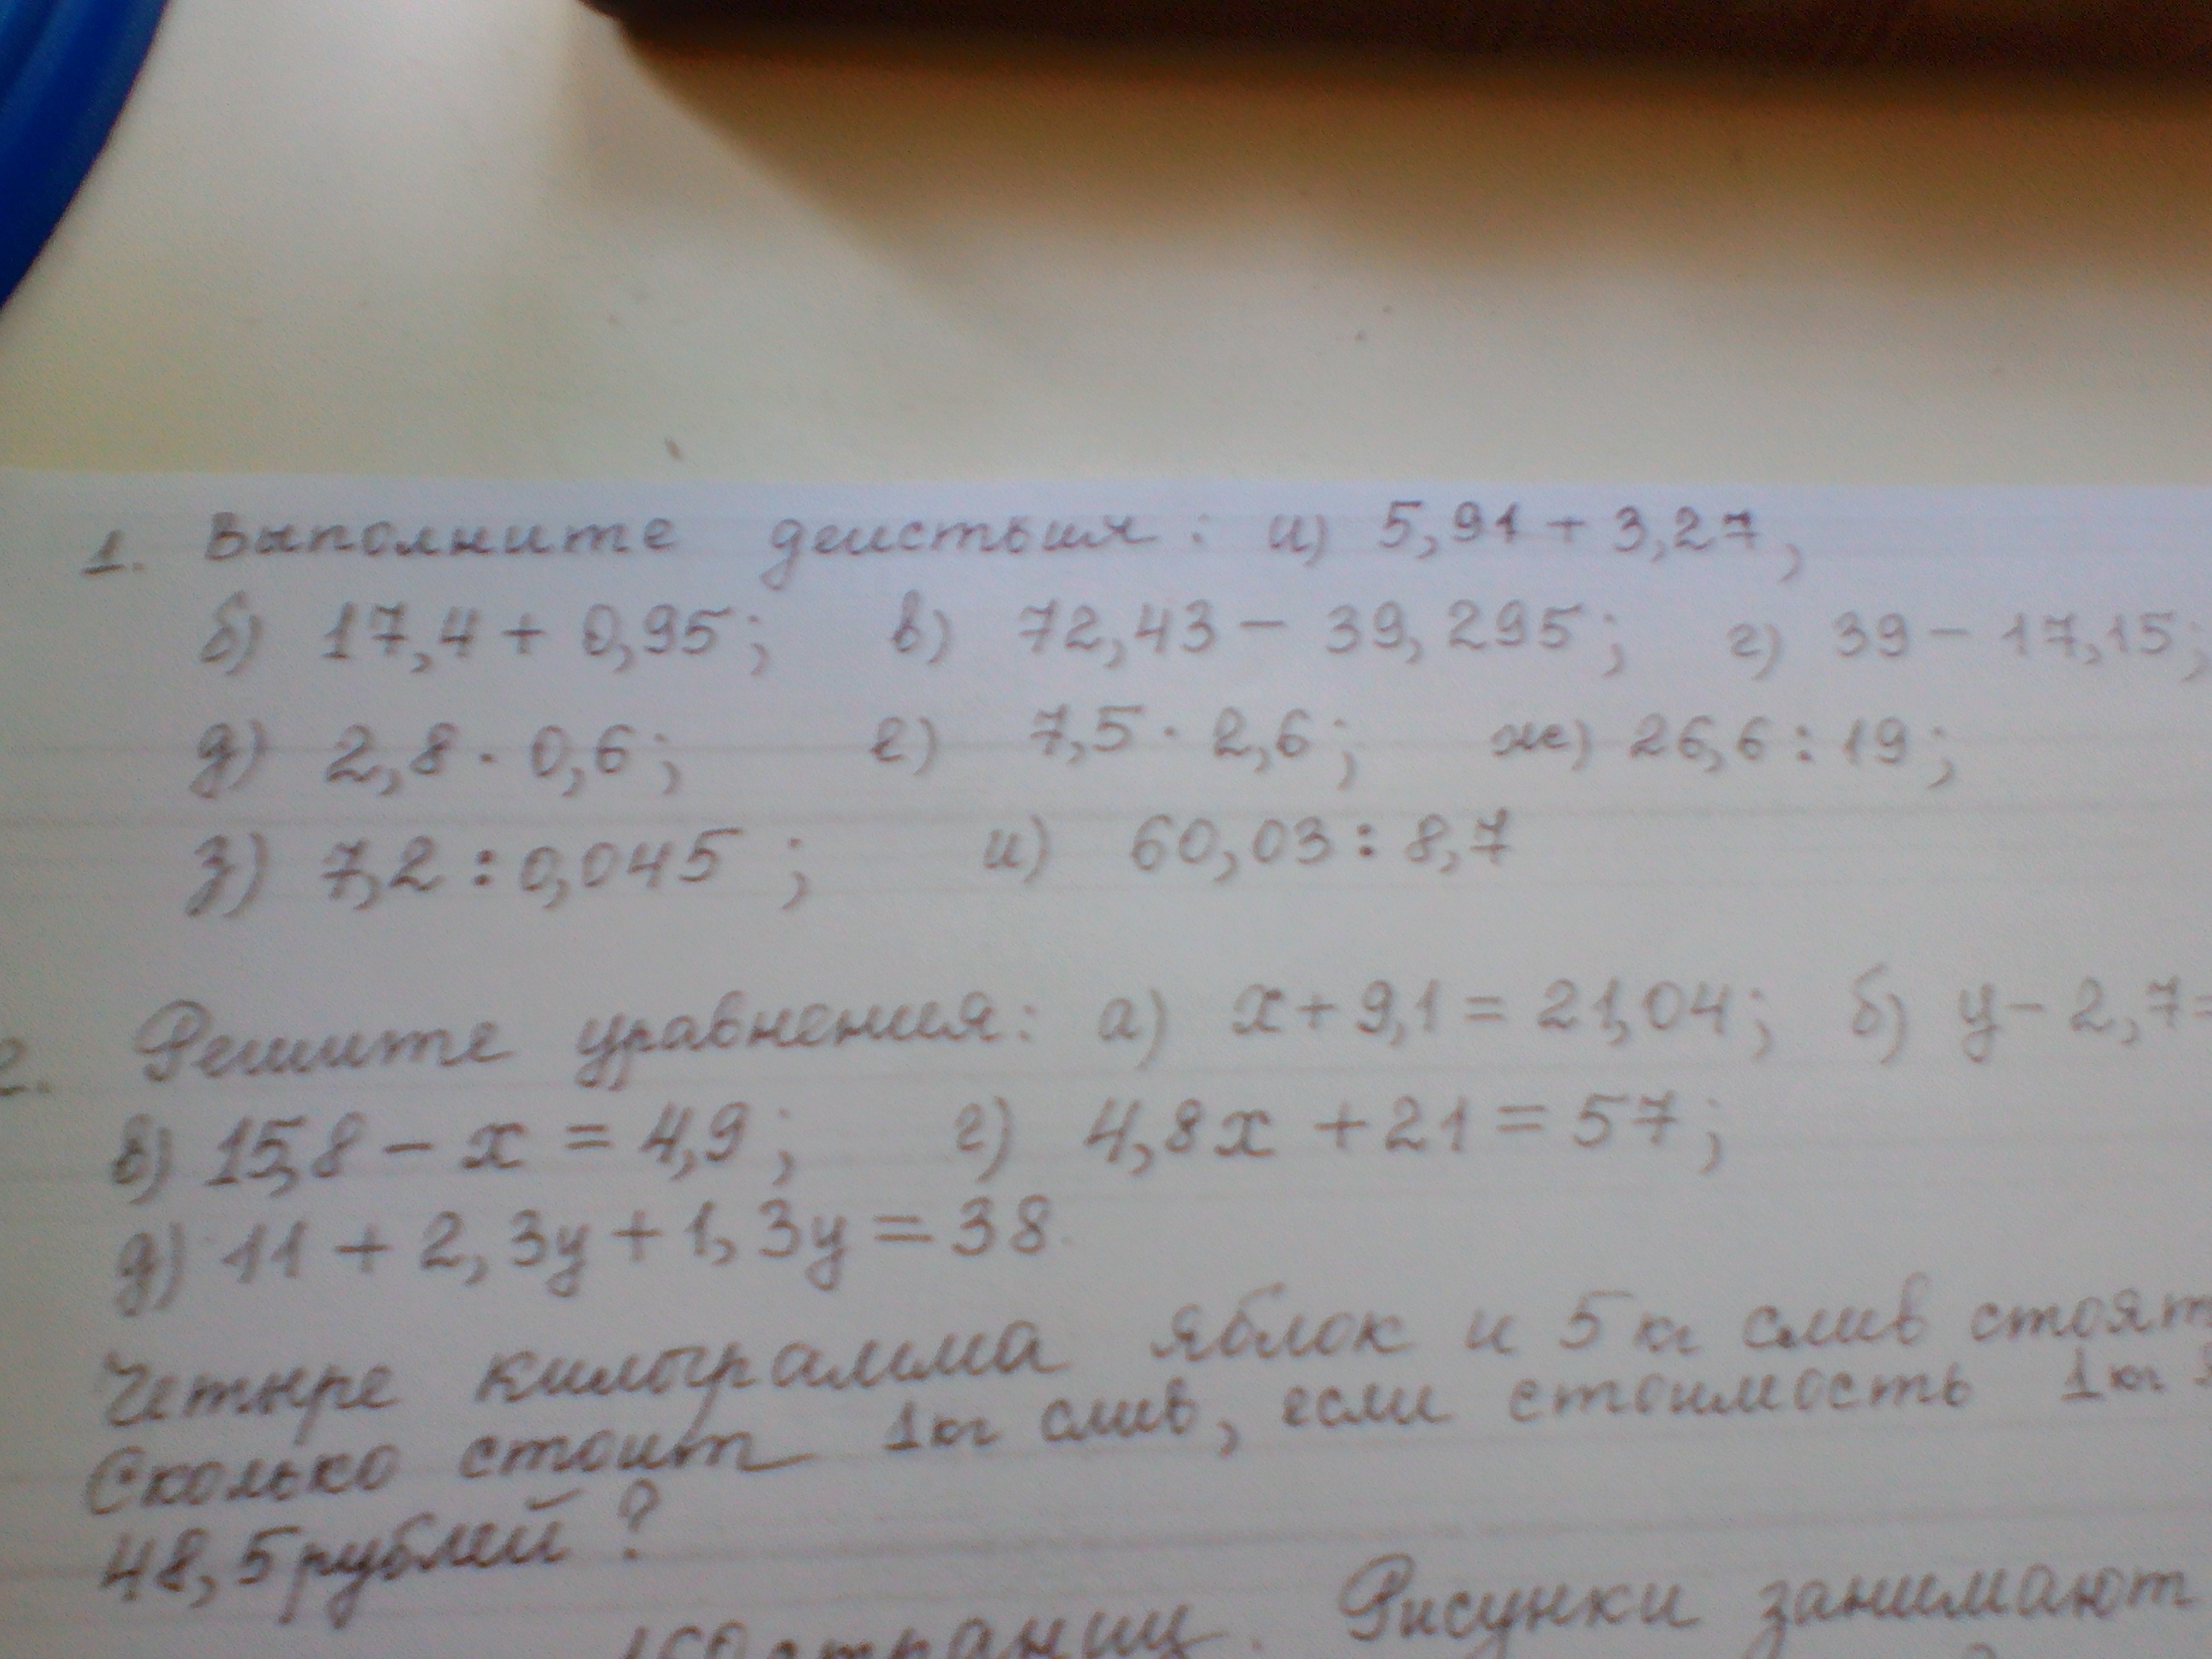 1. Выполните действия: а) 5,91 + 3,27,
б) 17,4 + 0,95; в) 72,43 - 39,295; г) 39 - 17,15;
д) 2,8 · 0,6; е) 7,5 · 2,6; ж) 26,6 : 19;
з) 7,2 : 0,045 ; и) 60,03 : 8,7
2. Решите уравнения: а) x + 9,1 = 21,04; б) y - 2,7 =
в) 15,8 - x = 4,9; г) 4,8x + 21 = 57;
д) 11 + 2,3y + 1,3y = 38.
Четыре килограмма яблок и 5 кг слив стоят
Сколько стоит 1 кг слив, если стоимость 1 кг
48,5 рублей?
160 страниц. Рисунки занимают